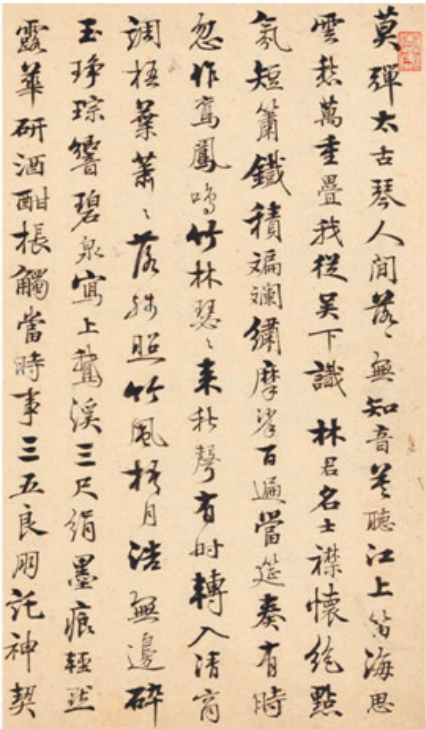 莫彈太古琴人間落〻無知音莫聽江上笛海思
雲愁萬重疊我從吴下識林君名士襟懷絶點
氛短簫鐵積斒斕繡摩挲百遍當筵奏有時
忽作鸞鳳鳴竹林瑟〻來秋聲有時轉入清商
調梧葉蕭〻落殘照竹風梧月浩無邊碎
玉琤琮響碧泉寫上鵞溪三尺絹墨痕輕
露華研酒酣棖觸當時事三五良朋託神契